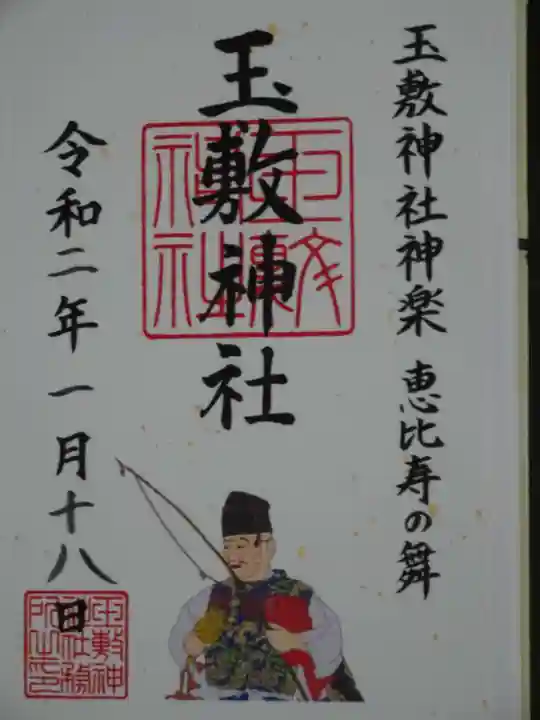 玉敷神社神楽 恵比寿の舞
玉敷神社
玉敷神社
令和二年一月十八日
玉敷神
社務
所之印